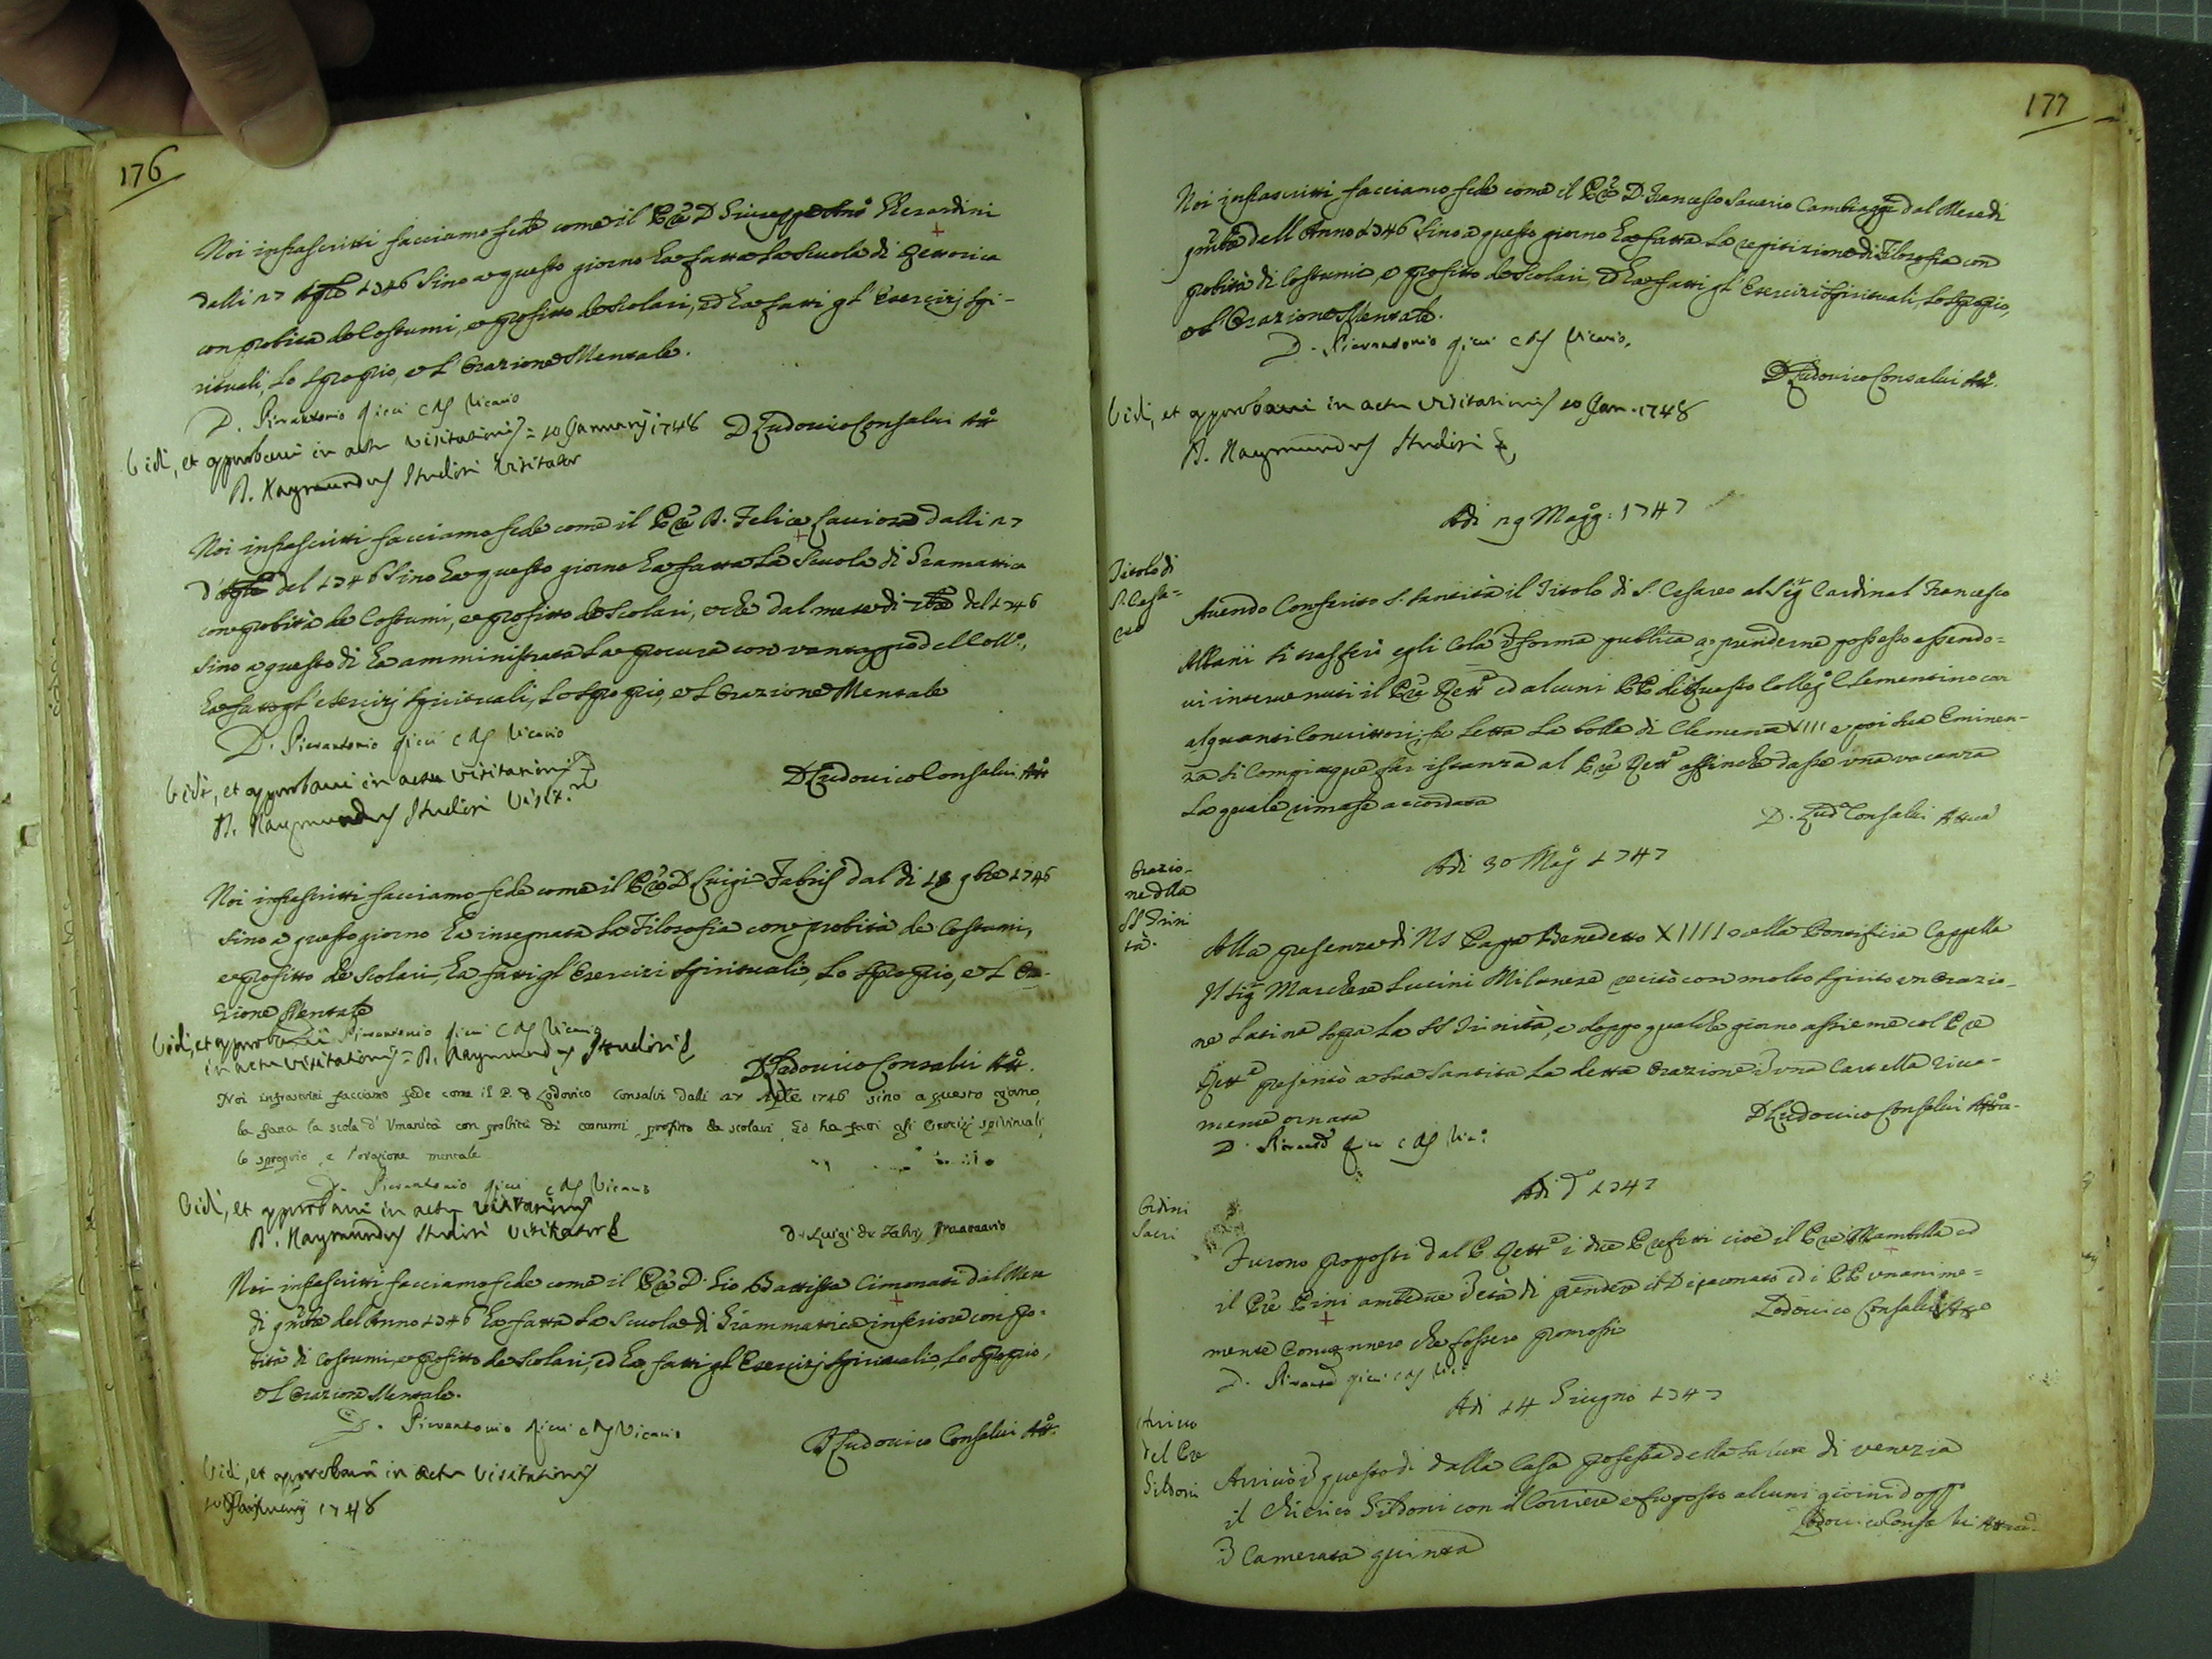 176
Noi infrascritti facciamo fede come il Pre D Giuseppe Ant.o Gherardini
dalli 27 Aple 1746 sino a questo giorno ha fatta la scuola di Rettorica
con probità de Costumi, e profitto de Scolari, ed ha fatti gl' Esercizj Spi-
rituali, lo Sproprio, e l' Orazione Mentale.
D. Pierantonio Ricci CRS Vicario
Vidi, et approbavi in actu visitationis = 10 Januarij 1748 D Ludovico Consalvi Att.o
D. Raymundus Studiosi Visitator
Noi infrascritti facciamo fede come il Pre D. Felice Lavioza dalli 27
d'Aple del 1746 sino ha questo giorno ha fatta la Scuola di Gramatica
con probità de Costumi, e profitto de Scolari, e che dal mese di del 1746
sino a questo di ha amministrata la procura con vantaggio del Coll.o,
ha fatto gl' esercizj Spirituali, lo Sproprio, e l Orazione Mentale
D. Pierantonio Ricci CRS Vicario
Vidi, et approbavi in actu visitationis D Ludovico Consalvi Att.o
D. Raymundus Studiosi Visit.r
Noi infrascritti facciamo fede come il Pre D Luigi Fabris dal di 18 9bre 1746
sino a questo giorno ha insegnata la Filosofia con probità de Costumi,
e profitto de Scolari, ha fatti gl' Esercizi Spirituali, lo Sproprio, e l Ora-
zione Mentale
Vidi, et approbavi Pierantonio Ricci CRS Vicario
in actu visitationis = D. Raymundus Studiosi
D Lodovico Consalvi Att.o.
Noi infrascritti facciamo fede come il P. D Lodovico Consalvi dalli 27 Aple 1746 sino a questo giorno
ha fatta la scola d' Umanità con probità di costumi, profitto da scolari, Ed ha fatti gli Esercizj spirituali,
lo sproprio, e l'orazione mentale
D. Pierantonio Ricci CRS Vicario
Vidi, et approbavi in actu visitationis
D. Raymundus Studiosi Visitator
D. Luigi de Fabris
Noi infrascritti facciamo fede come il Pre D. Gio Battista Cimonati dal Mese
di del Anno 1746 ha fatta la Scuola di Grammatica inferiore con pro-
bità di Costumi, e profitto de Scolari, ed ha fatti gl' Esercizj Spirituali, lo Sproprio,
e l Orazione Mentale.
D. Pierantonio Ricci CRS Vicario
D Ludovico Consalvi Att.o
Vidi, et approbavi in actu visitationis
10 Januarij 1748
177
Noi infrascritti facciamo fede come il Pre D. Francesco Saverio Cambiaggi dal Mese di
dell Anno 1746 sino a questo giorno ha fatta la repitizione di Filosofia con
probità di Costumi, e profitto de Scolari, ed ha fatti gl' Esercizi Spirituali, lo Sproprio,
e l' Orazione Mentale.
D. Pierantonio Ricci CRS Vicario.
D Ludovico Consalvi Att.
Vidi, et approbavi in actu visitationis 10 Jan. 1748
D. Raymundus Studiosi
Adi 29 Magg: 1747
Titolo di
S. Cesa=
reo
Avendo Conferito S. Santità il Titolo di S. Cesareo al Sig.r Cardinal Francesco
Albani si trasferì egli colà in forma publica a prenderne possesso essendo=
vi intervenuti il Pre Rett.e ed alcuni PP di questo Colleg.o Clementino con
alquanti Convittori, fu letta la bolla di Clemente XIII e poi sua Eminen-
za si Compiacque far istanza al Pre Rett.e affinche dasse una vacanza
la quale rimase accordata
D. Lud Consalvi Attua
Adi 30 Mag.o 1747
Orazio-
ne della
SS Trini
tà.
Alla presenza di NS Papa Benedetto XIIII nella Pontificia Cappella
Il Sig.r Marchese Lucini Milanese recitò con molto Spirito un Orazio-
ne Latina sopra la SS Trinità, e doppo qualche giorno assieme col Pre
Rett.e presentò a sua Santita la detta Orazione in una Cartella ricca-
mente ornata
D Ludovico Consalvi Att.o
D. Pierant.o Ricci CRS Vic.o
Adi d.o 1747
Ordini
Sacri
Furono proposti dal P Rett.e i due Prefetti cioè il Pre Mambilla ed
il Pre Pini ambedue in età di prendere il Diaconato ed i PP unanime=
mente Convennero che fossero promossi
Lodovico Consalvi Att.o
D. Pierant.o Ricci CRS Vic.o
Adi 14 Giugno 1747
Arrivo
del Pre
Gildoni
Arrivò in questo di dalla Casa professa della Salute di Venezia
il Chierico Gildoni con il Corriere e fu posto alcuni giorni doppo
in Camerata quinta
Lodovico Consalvi Att.o